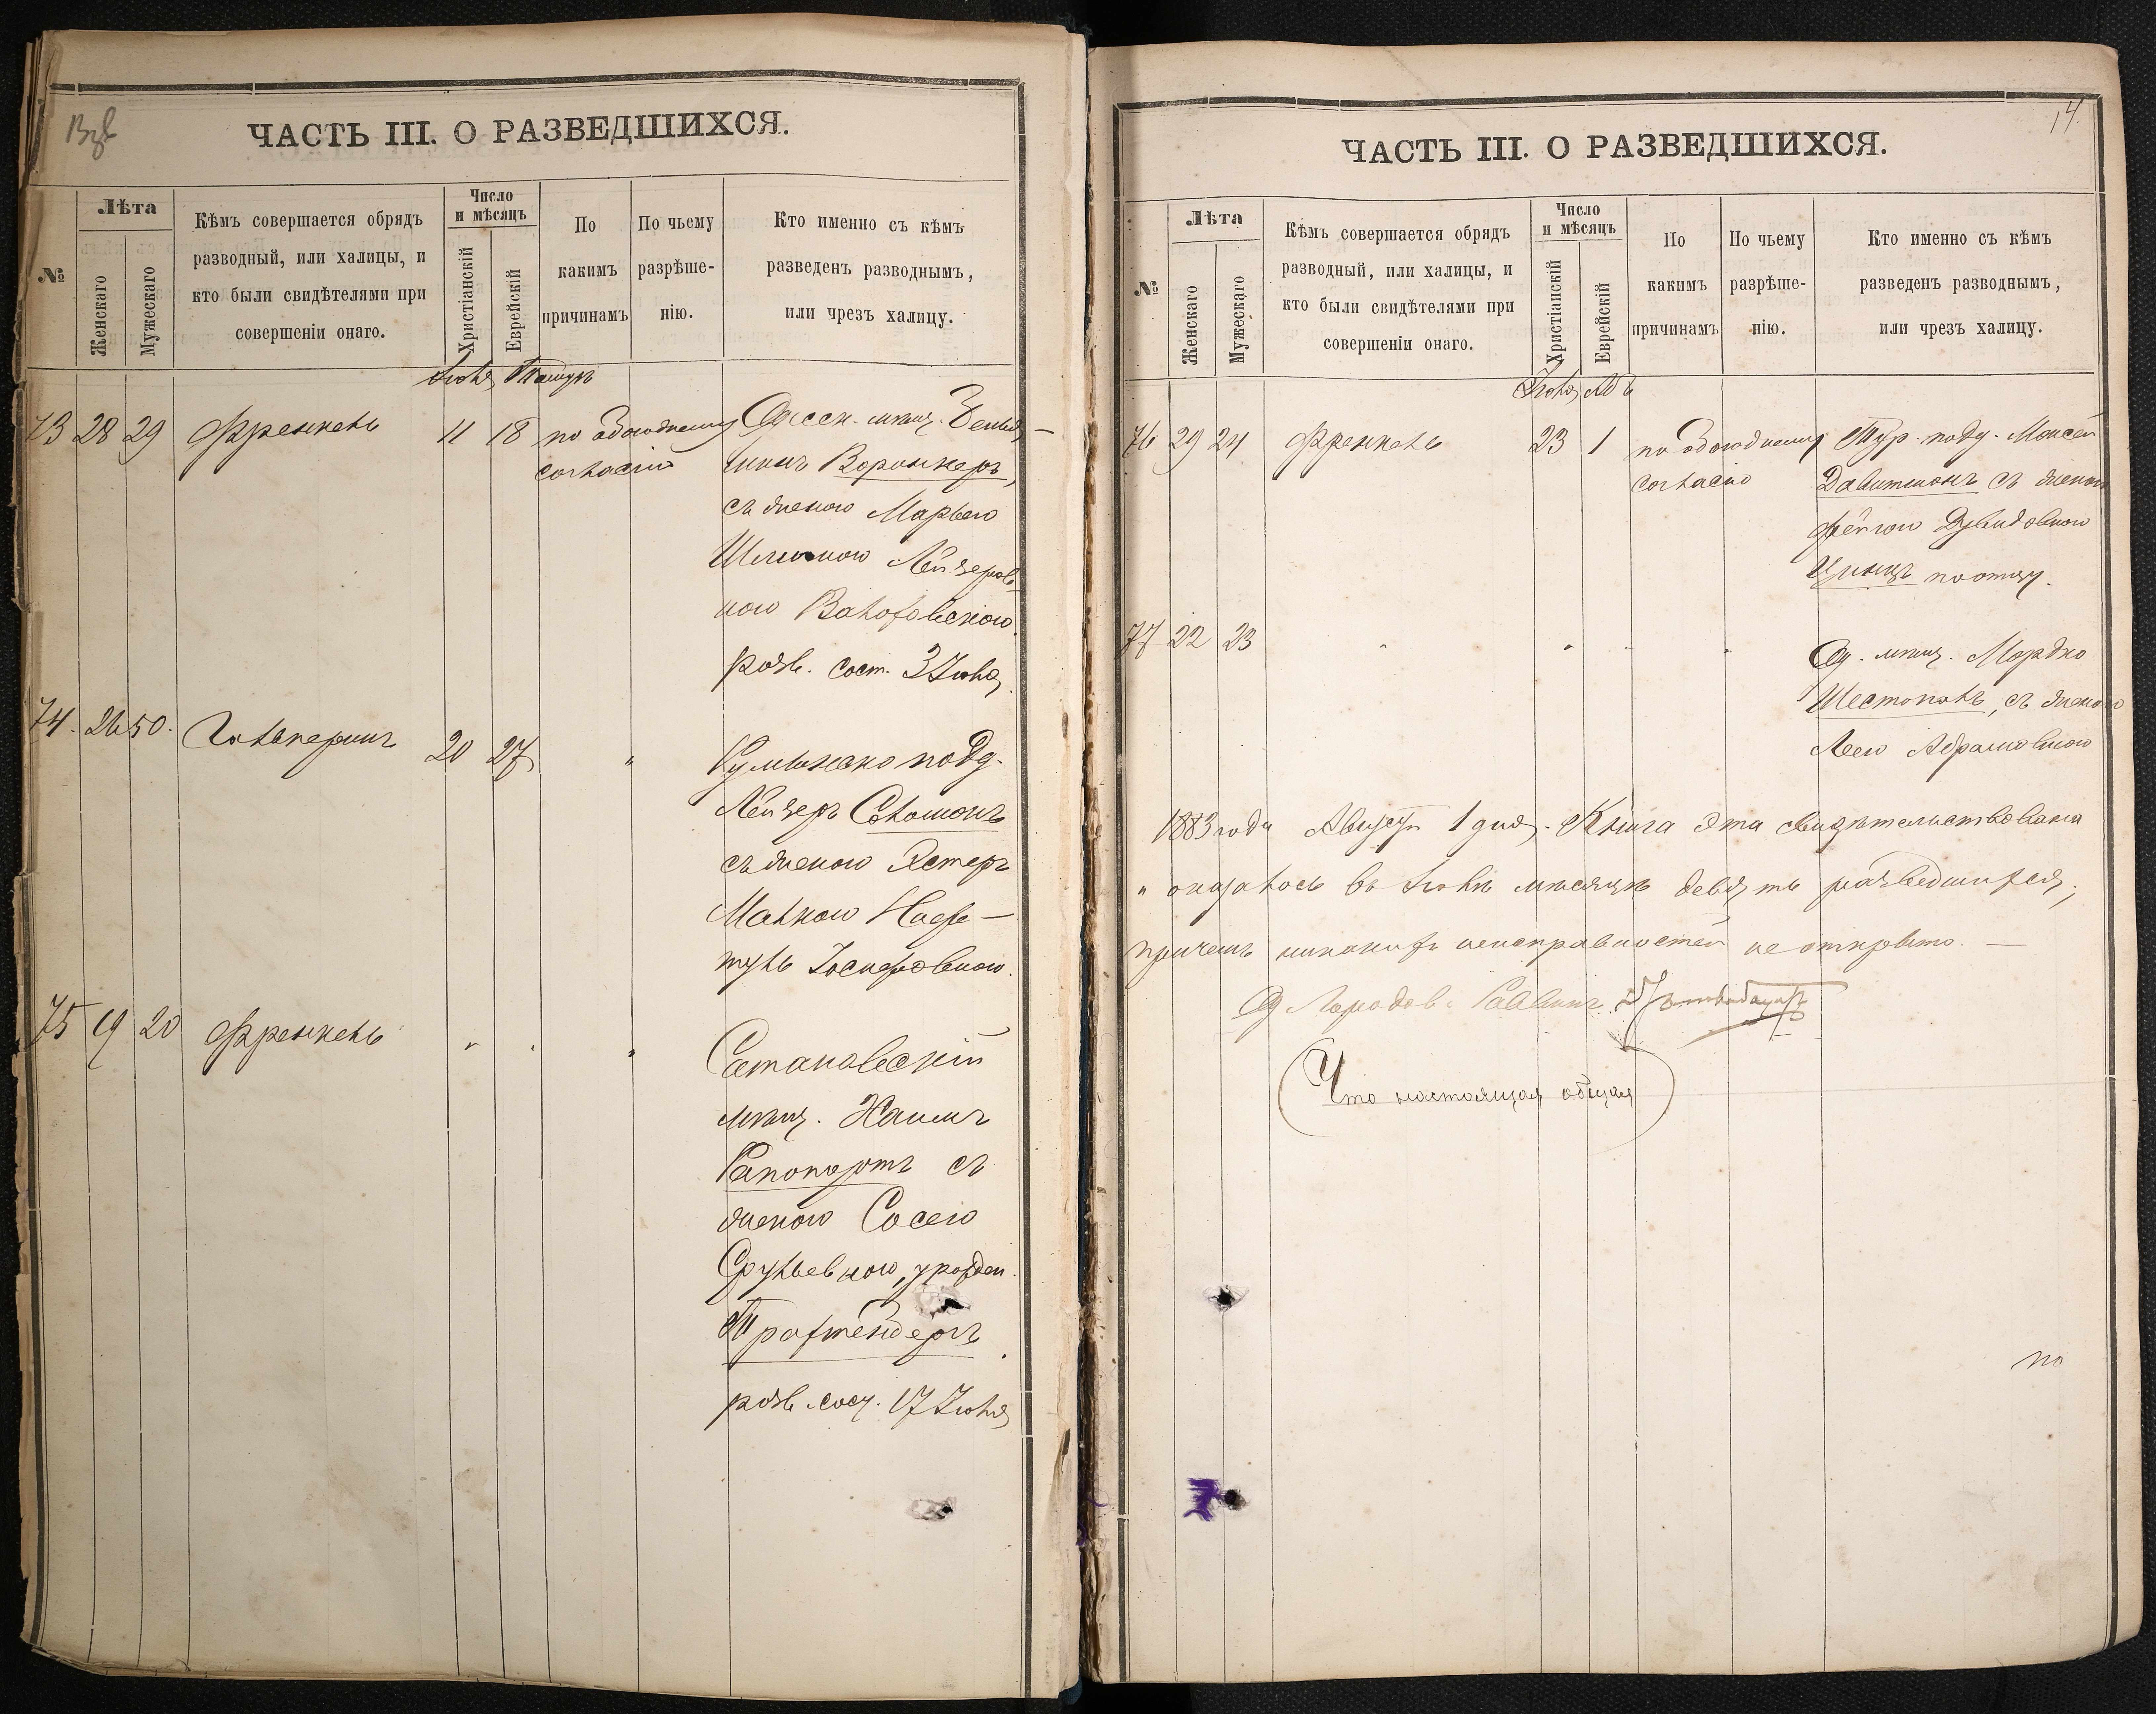 ЧАСТЬ III. О РАЗВЕДШИХСЯ.
№
Лѣта
Женскаго
Мужескаго
Кѣмъ совершается обрядъ
разводный, или халицы, и
кто были свидѣтелями при
совершеніи онаго.
Число
и мѣсяцъ
Христіанскій
Еврейскій
По
какимъ
причинамъ
По чьему
разрѣше-
нію.
Кто именно съ кѣмъ
разведенъ разводнымъ,
или чрезъ халицу.
Іюля Тамузъ
73 28 29 Френкель 11 18 по обоюдному
согласію
Одесск. мѣщ. Веньа-
минъ Воронкеръ,
съ женою Марьею
Лейзеров
ною
разв. сост. 3 Іюля
74. 26 50. Гальперинъ 20 27 "
Румынско подд.
Лейзеръ Соломонъ
съ женою Эстеръ
Малкою Наф-
туль Іосифовною.
75 19 20 Френкель " " "
Сатановскій
мѣщ. Хаимъ
Рапопортъ съ
женою Сосею
Срульевною, урожден.
Трахтенберъ
разв. сост. 17 Іюля
14.
ЧАСТЬ III. О РАЗВЕДШИХСЯ.
№
Лѣта
Женскаго
Мужескаго
Кѣмъ совершается обрядъ
разводный, или халицы, и
кто были свидѣтелями при
совершеніи онаго.
Число
и мѣсяцъ
Христіанскій
Еврейскій
По
какимъ
причинамъ
По чьему
разрѣше-
нію.
Кто именно съ кѣмъ
разведенъ разводнымъ,
или чрезъ халицу.
Іюля Абъ
76 29 24 Френкель 23 1 по обоюдному
согласію
Тур. подд. Моисей
Давитионъ съ женою
Фейгою Дувидовною
по отцу.
77 22 23 " " " "
Од. мѣщ. Мордко
Шестопалъ, съ женою
Леею Абрамовною
1883 года Августа 1 дня. Книга эта свидѣтельствована
и оказалось въ Іюлѣ мѣсяцѣ девять разведшихся,
причемъ никакихъ неисправностей не открыто. —
Од Городов. Раввинъ
(Что настоящая общая)
по